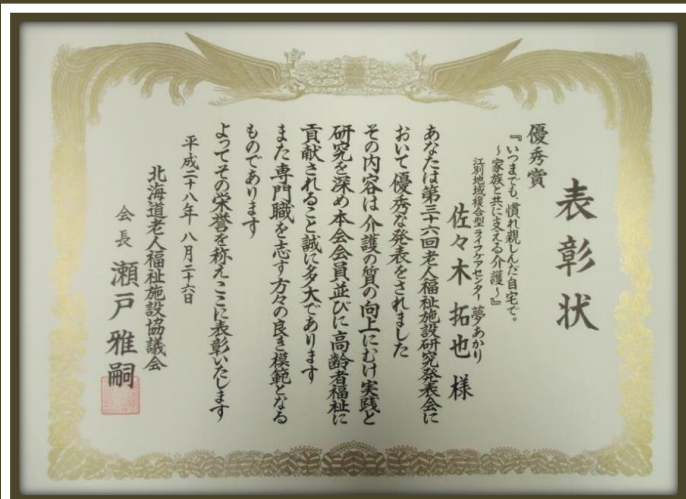 表彰状
優秀賞
『いつまでも、慣れ親しんだ自宅で。
～家族と共に支える介護～』
江別地域複合型ライフケアセンター 夢あかり
佐々木 拓也 様
あなたは第三十六回老人福祉施設研究発表会に
おいて優秀な発表をされました
その内容は介護の質の向上にむけ実践と
研究を深め本会会員並びに高齢者福祉に
貢献されること誠に多大であります
また専門職を志す方々の良き模範となる
ものであります
よってその栄誉を称えここに表彰いたします
平成二十八年 八月二十六日
北海道老人福祉施設協議会
会長 瀬戸雅嗣